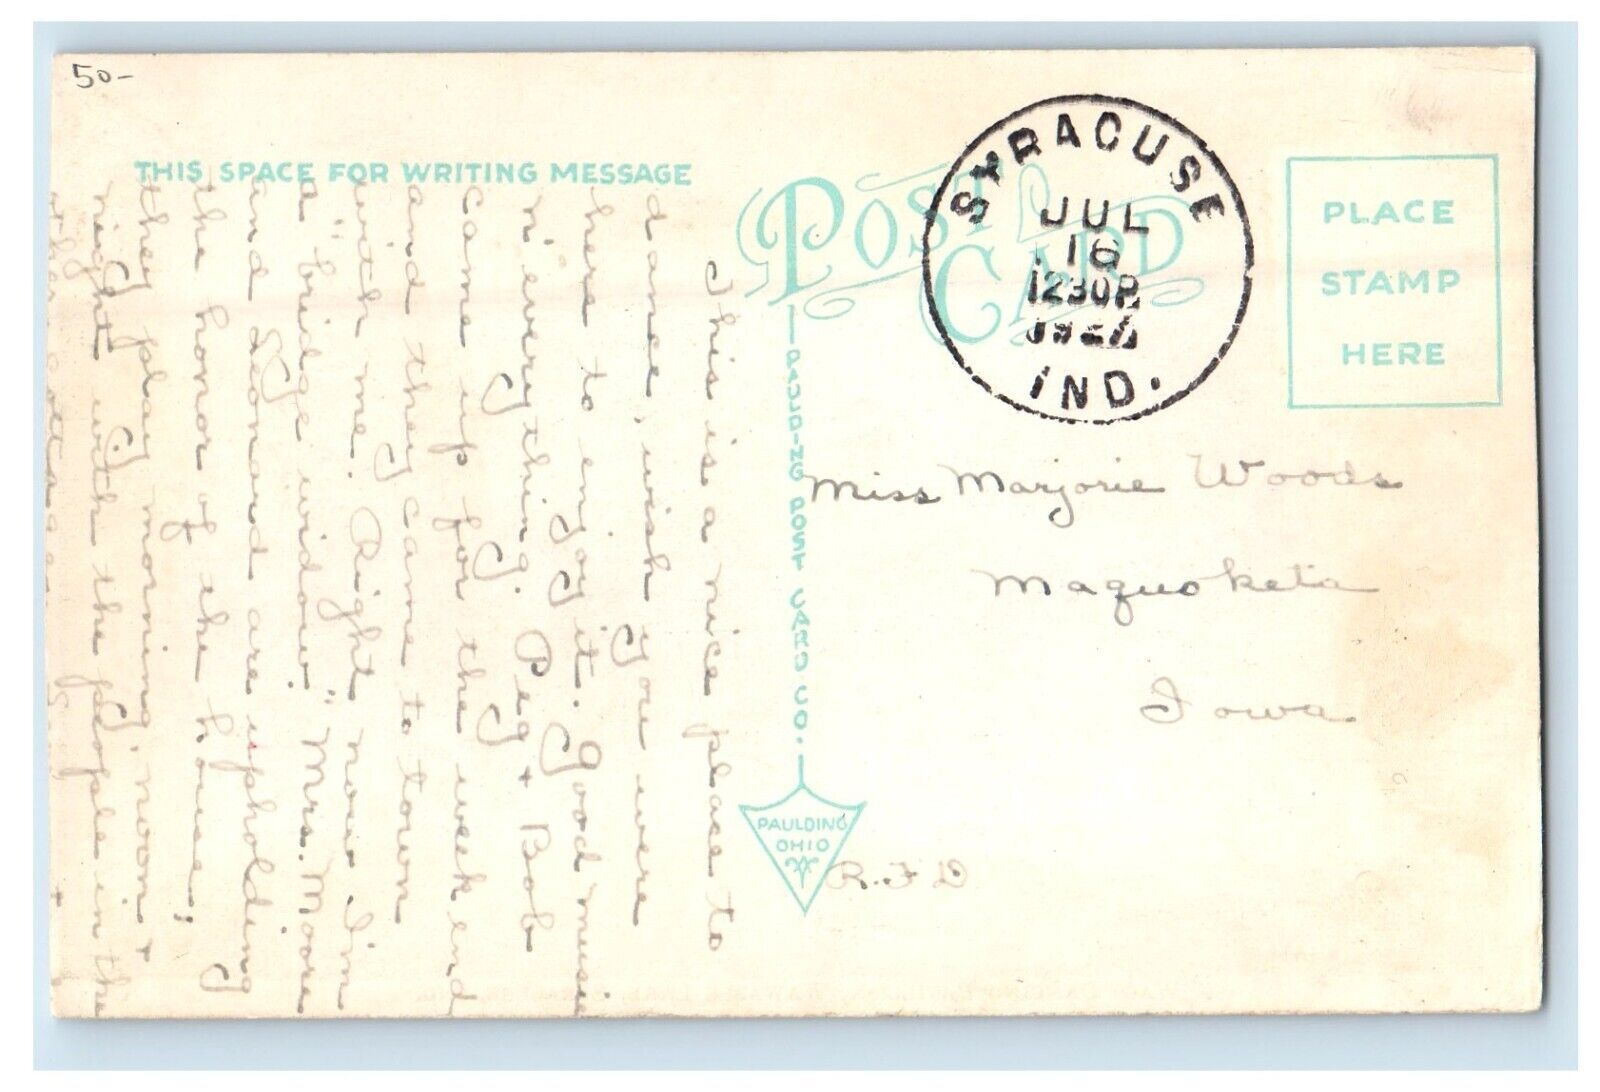 50-
THIS SPACE FOR WRITING MESSAGE
POST CARD
SYRACUSE
JUL
16
1230P
IND.
PLACE
STAMP
HERE
This is a nice place to
dance, wish you were
here to enjoy it. Good music
n' everything. Peg + Bob
came up for the week end
and they came to town
with me. Right now I'm
a "bridge widow" Mrs. Moore
and Leonard are upholding
the honor of the house,
they play morning, noon +
night with the people in the
other cottages
PAULDING POST CARD CO.
PAULDING
OHIO
Miss Marjorie Woods
Maquoketa
Iowa
R.F.D